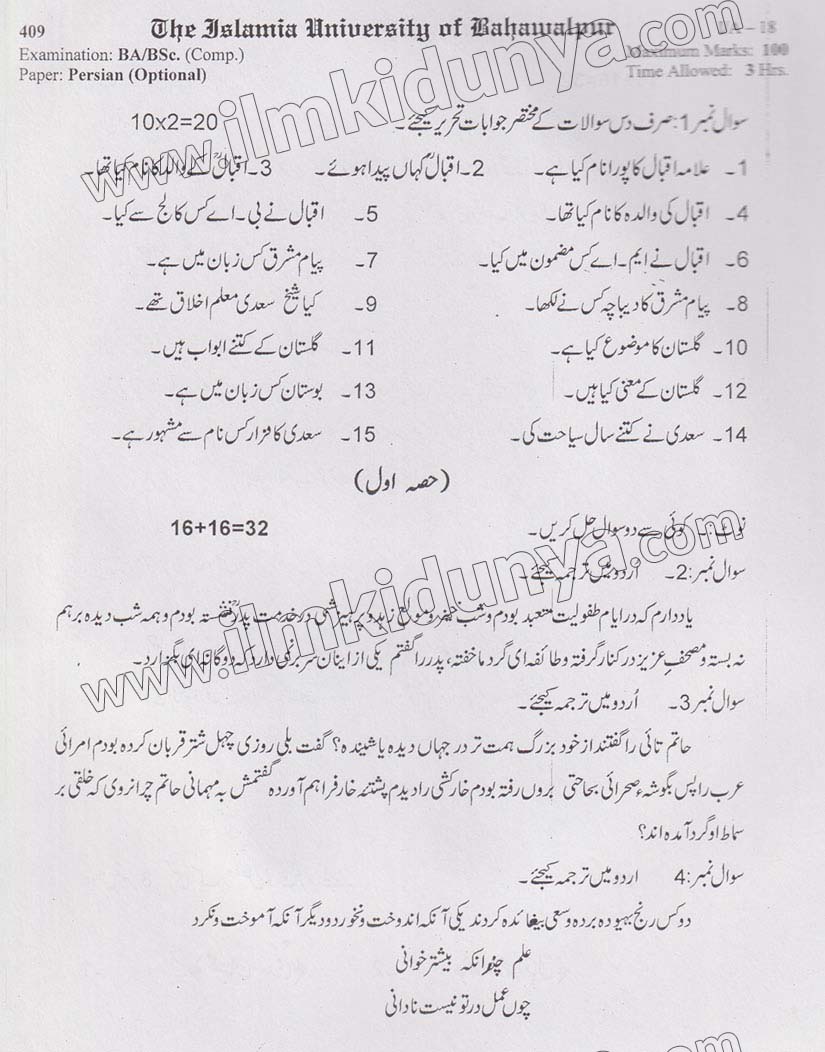 409 The Islamia University of Bahawalpur A – 18
Examination: BA/BSc. (Comp.) Maximum Marks: 100
Paper: Persian (Optional) Time Allowed: 3 Hrs.
سوال نمبر 1: صرف دس سوالات کے مختصر جوابات تحریر کیجئے۔ 10x2=20
1۔ علامہ اقبال کا پورا نام کیا ہے۔ 2۔ اقبالؒ کہاں پیدا ہوئے۔ 3۔ اقبالؒ کے والد کا نام کیا تھا۔
4۔ اقبال کی والدہ کا نام کیا تھا۔ 5۔ اقبال نے بی۔اے کس کالج سے کیا۔
6۔ اقبال نے ایم۔اے کس مضمون میں کیا۔ 7۔ پیام مشرق کس زبان میں ہے۔
8۔ پیام مشرق کا دیباچہ کس نے لکھا۔ 9۔ کیا شیخ سعدی معلم اخلاق تھے۔
10۔ گلستان کا موضوع کیا ہے۔ 11۔ گلستان کے کتنے ابواب ہیں۔
12۔ گلستان کے معنی کیا ہیں۔ 13۔ بوستان کس زبان میں ہے۔
14۔ سعدی نے کتنے سال سیاحت کی۔ 15۔ سعدی کا مزار کس نام سے مشہور ہے۔
(حصہ اول)
نوٹ:۔ کوئی سے دو سوال حل کریں۔ 16+16=32
سوال نمبر:2۔ اُردو میں ترجمہ کیجئے۔
یاد دارم کہ در ایام طفولیت متعبد بودم و شب خیز و مولع زہد و پرہیز شبی در خدمت پدرؒ نشستہ بودم و ہمہ شب دیدہ برہم
نہ بستہ و مصحفِ عزیز در کنار گرفتہ و طائفہ ای گرد ما خفتہ، پدر را گفتم یکی از اینان سر بر نمی دارد کہ دوگانہ ای بگذارد۔
سوال نمبر 3۔ اُردو میں ترجمہ کیجئے۔
حاتم تائی را گفتند از خود بزرگ ہمت تر در جہاں دیدہ یا شیندہ؟ گفت بلی روزی چہل شتر قربان کردہ بودم امرائی
عرب را پس بگوشہء صحرائی بحاجتی بروں رفتہ بودم خارکشی را دیدم پشتئہ خار فراہم آوردہ گفتمش بہ مہمانی حاتم چرا نروی کہ خلقی بر
سماط او گرد آمدہ اند؟
سوال نمبر:4 اردو میں ترجمہ کیجئے۔
دو کس رنج بیہودہ بردہ و سعی بیفائدہ کردند یکی آنکہ اندوخت و نخورد و دیگر آنکہ آموخت و نکرد
علم چندانکہ بیشتر خوانی
چوں عمل در تو نیست نادانی
www.ilmkidunya.com
www.ilmkidunya.com
www.ilmkidunya.com